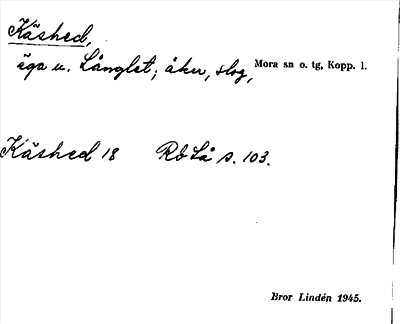 Käshed,
äga u. Långlet; åker, slog, Mora sn o. tg, Kopp. l.
Käshed 18 RÖ Lå s. 103.
Bror Lindén 1945.